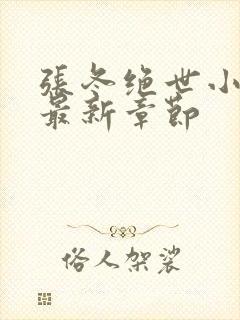 張冬绝世小
最新章節
俗人架裟